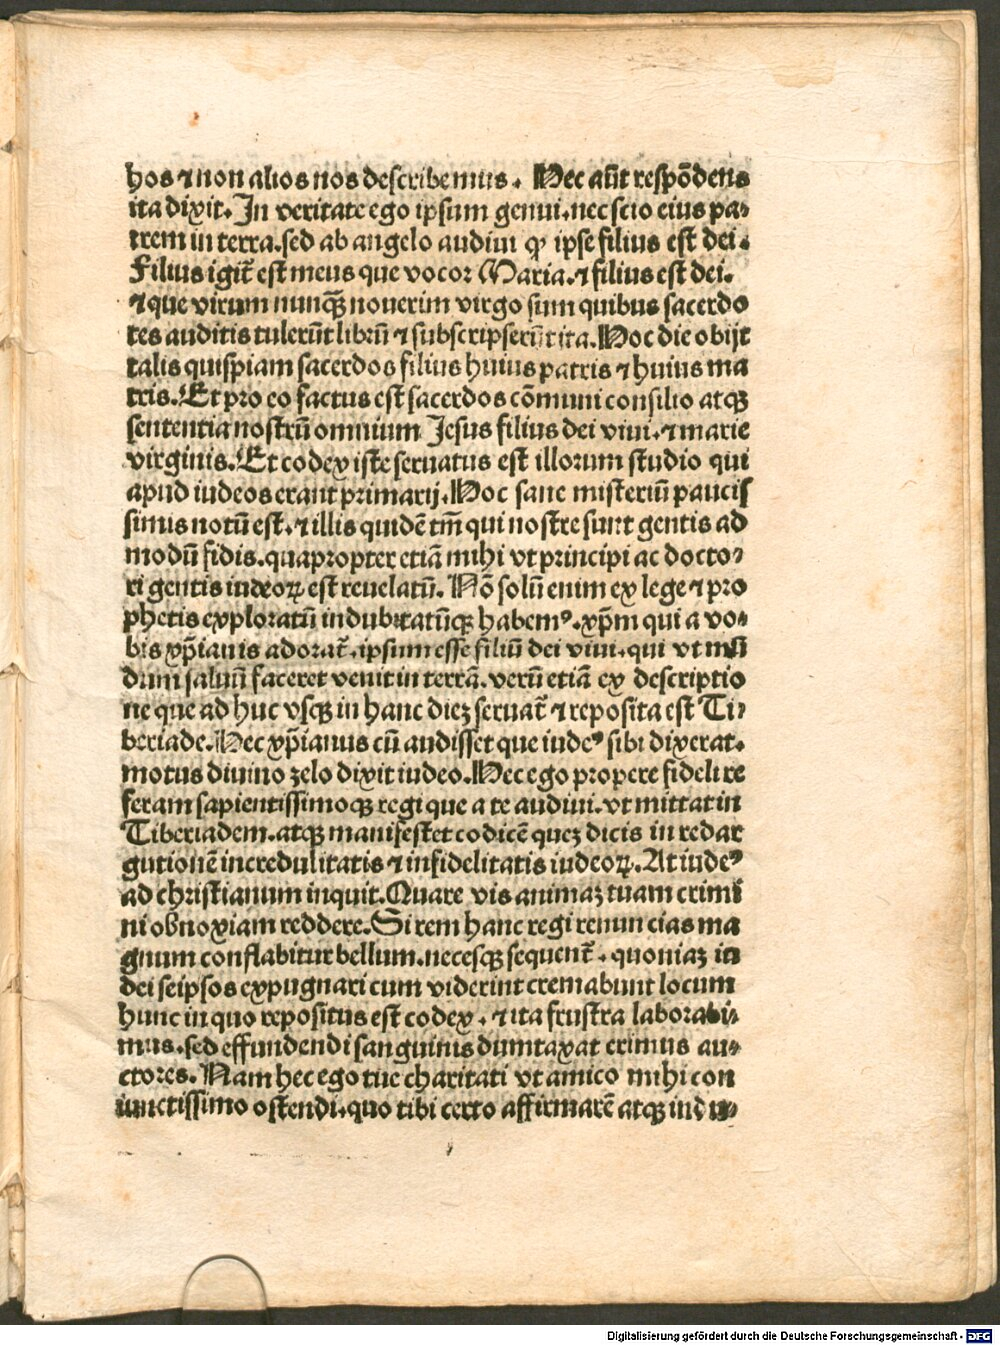 hos ⁊ non alios nos describemus. Hec aūt respōdens
ita dixit. In veritate ego ipsum genui. nec scio eius pa⸗
trem in terra. sed ab angelo audiui ꝙ ipse filius est dei.
Filius igit̄ est meus que vocor Maria. ⁊ filius est dei.
⁊ que virum nunqᷓꝫ nouerim virgo sum quibus sacerdo
tes auditis tulerūt librū ⁊ subscripserūt ita. Hoc die obijt
talis quispiam sacerdos filius huius patris ⁊ huius ma
tris. Et pro eo factus est sacerdos cōmuni consilio atqꝫ
sententia nostrū omnium Jesus filius dei viui. ⁊ marie
virginis. Et codex iste seruatus est illorum studio qui
apud iudeos erant primarij. Hoc sane misteriū paucis
simis notū est. ⁊ illis quidē tm̄ qui nostre sunt gentis ad
modū fidis. quapropter etiā mihi vt principi ac docto⸗
ri gentis iudeoꝝ est reuelatū. Nō solū enim ex lege ⁊ pro
phetis exploratū indubitatūqꝫ habemꝰ. xp̄m qui a vo⸗
bis xp̄ianis adorat̄. ipsum esse filiū dei viui. qui vt mū
dum saluū faceret venit in terrā. verū etiā ex descriptio
ne que ad huc vsqꝫ in hanc dieꝫ seruat̄ ⁊ reposita est Ti⸗
beriade. Hec xp̄ianus cū audisset que iudeꝰ sibi dixerat.
motus diuino zelo dixit iudeo. Hec ego propere fideli re
feram sapientissimoqꝫ regi que a te audiui. vt mittat in
Tiberiadem. atqꝫ manifestet codicē queꝫ dicis in redar
gutionē incredulitatis ⁊ infidelitatis iudeoꝝ. At iudeꝰ
ad christianum inquit. Quare vis animaꝫ tuam crimi
ni obnoxiam reddere. Si rem hanc regi renuncias ma
gnum conflabitur bellum. necesqꝫ sequent̄. quoniaꝫ iu
dei seipsos expugnari cum viderint cremabunt locum
hunc in quo repositus est codex. ⁊ ita frustra laborabi⸗
mus. sed effundendi sanguinis dumtaxat erimus au⸗
ctores. Nam hec ego tue charitati vt amico mihi con
iunctissimo ostendi. quo tibi certo affirmarē atqꝫ indu⸗
Digitalisierung gefördert durch die Deutsche Forschungsgemeinschaft - DFG